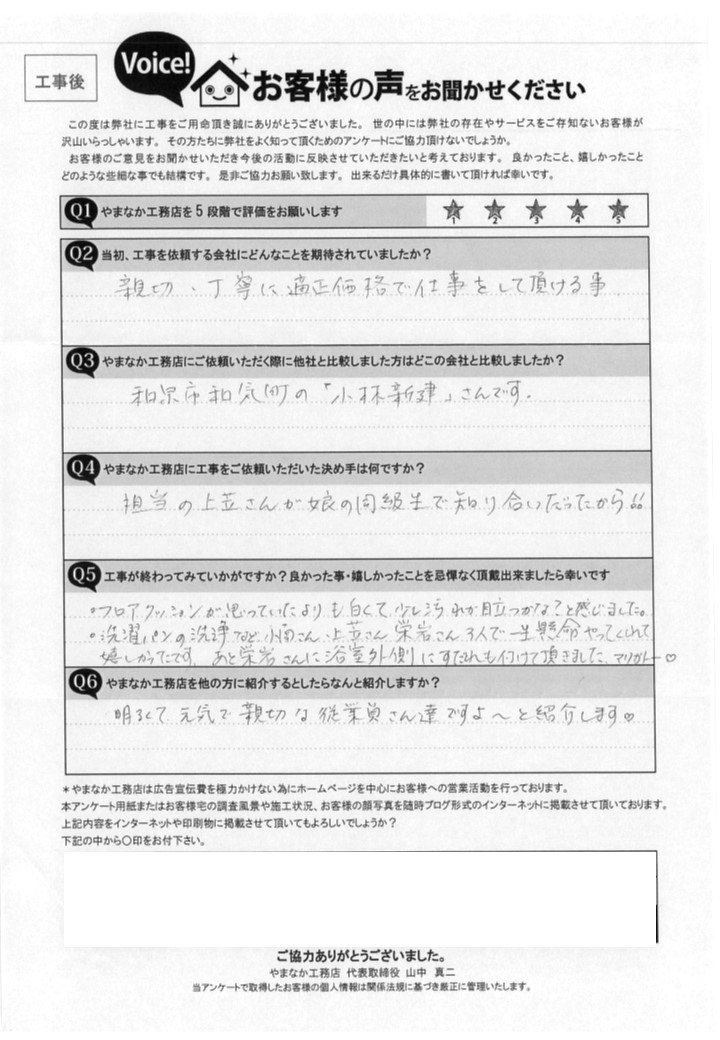 工事後
Voice!
お客様の声をお聞かせください
この度は弊社に工事をご用命頂き誠にありがとうございました。 世の中には弊社の存在やサービスをご存知ないお客様が
沢山いらっしゃいます。 その方たちに弊社をよく知って頂くためのアンケートにご協力頂けないでしょうか。
お客様のご意見をお聞かせいただき今後の活動に反映させていただきたいと考えております。 良かったこと、嬉しかったこと
どのような些細な事でも結構です。 是非ご協力お願い致します。 出来るだけ具体的に書いて頂ければ幸いです。
Q1 やまなか工務店を5段階で評価をお願いします
1 2 3 4 5
Q2 当初、工事を依頼する会社にどんなことを期待されていましたか？
親切、丁寧に適正価格で仕事をして頂ける事.
Q3 やまなか工務店にご依頼いただく際に他社と比較しました方はどこの会社と比較しましたか？
和泉市和気町の「小林新建」さんです.
Q4 やまなか工務店に工事をご依頼いただいた決め手は何ですか？
担当の上苙さんが娘の同級生で知り合いだったから!!
Q5 工事が終わってみていかがですか？良かった事・嬉しかったことを忌憚なく頂戴出来ましたら幸いです
・フロアクッションが思っていたよりも白くて少し汚れが目立つかな?と感じました。
・洗濯パンの洗浄など、小南さん、上苙さん、栄岩さん3人で一生懸命やってくれて
嬉しかったです。あと栄岩さんに浴室外側にすだれも付けて頂きました、マリガトー♡
Q6 やまなか工務店を他の方に紹介するとしたらなんと紹介しますか？
明るくて元気で親切な従業員さん達ですよ〜と紹介します♡
＊やまなか工務店は広告宣伝費を極力かけない為にホームページを中心にお客様への営業活動を行っております。
本アンケート用紙またはお客様宅の調査風景や施工状況、お客様の顔写真を随時ブログ形式のインターネットに掲載させて頂いております。
上記内容をインターネットや印刷物に掲載させて頂いてもよろしいでしょうか？
下記の中から〇印をお付下さい。
ご協力ありがとうございました。
やまなか工務店 代表取締役 山中 真二
当アンケートで取得したお客様の個人情報は関係法規に基づき厳正に管理いたします。